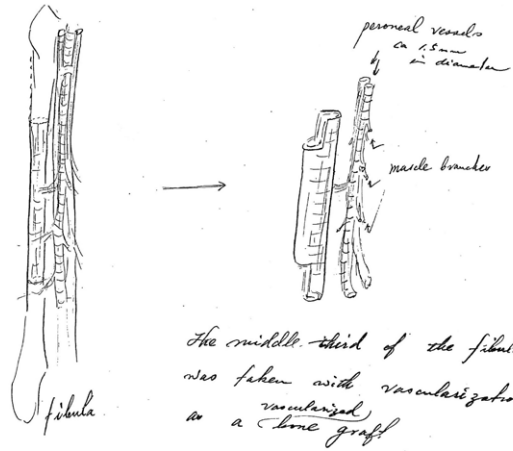 peroneal vessels
ca 1.5mm
in diameter
muscle branches
fibula
The middle third of the fibul
was taken with vascularizatio
vascularized
as a bone graft